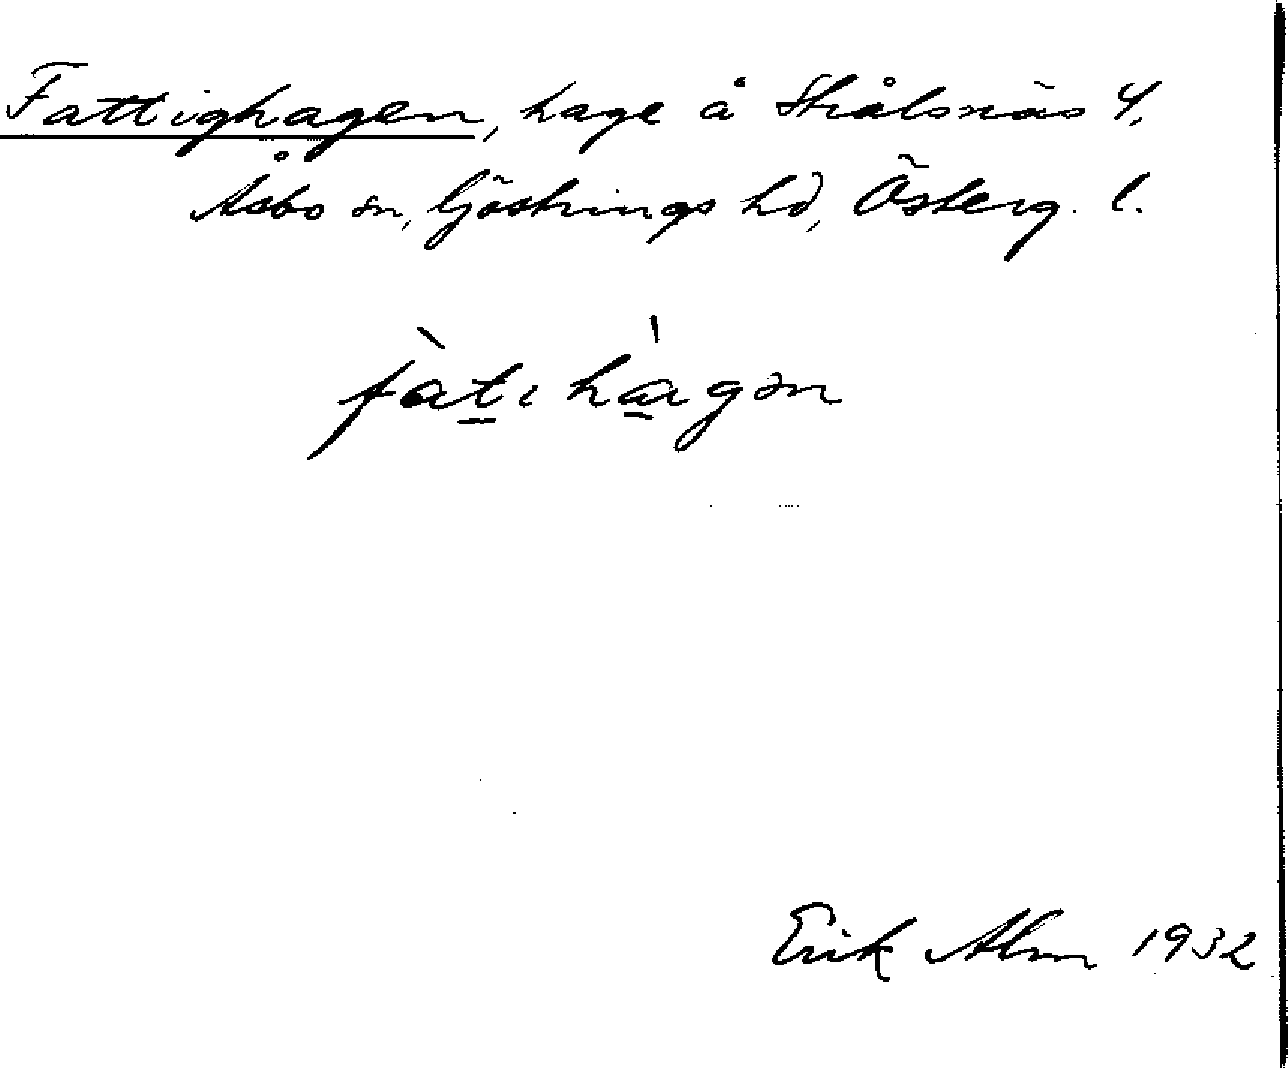 Fattighagen, hage å Strålsnäs Y.
Åsbo sn, Göstrings hd, Österg. l.
fàt̲ı hạ̀gən
Erik Alm 1932